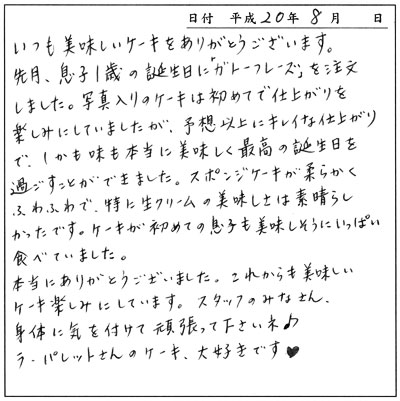 日付 平成20年8月 日
いつも美味しいケーキをありがとうございます。
先月、息子1歳の誕生日に「ガトーフレーズ」を注文
しました。写真入りのケーキは初めてで仕上がりを
楽しみにしていましたが、予想以上にキレイな仕上がり
で、しかも味も本当に美味しく最高の誕生日を
過ごすことができました。スポンジケーキが柔らかく
ふわふわで、特に生クリームの美味しさは素晴らし
かったです。ケーキが初めての息子も美味しそうにいっぱい
食べていました。
本当にありがとうございました。これからも美味しい
ケーキ楽しみにしています。スタッフのみなさん、
身体に気を付けて頑張って下さいネ♪
ラ・パレットさんのケーキ、大好きです♥